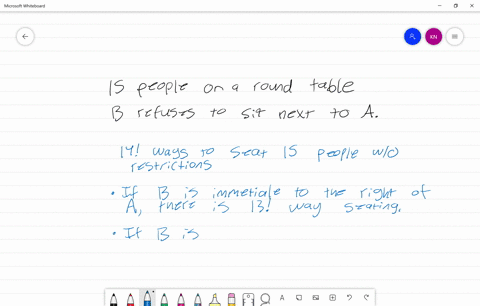 Microsoft Whiteboard
A KN
15 people on a round table
B refuses to sit next to A.
14! ways to seat 15 people w/o
restrictions
• If B is immetiale to the right of
A, there is 13! way seating.
• If B is
A